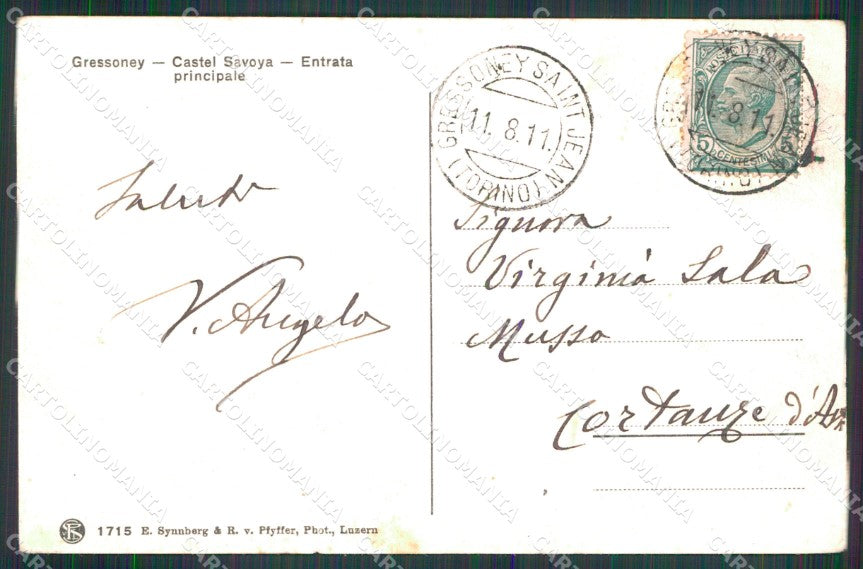 Gressoney — Castel Savoya — Entrata
principale
GRESSONEY SAINT JEAN
11. 8. 11.
(TORINO)
11. 8. 11.
CENTESIMI
Saluti
V. Angelo
Signora
Virginia Sala
Musso
Cortanze d'
1715 E. Synnberg & R. v. Pfyffer, Phot., Luzern
CARTOLINOMANIA